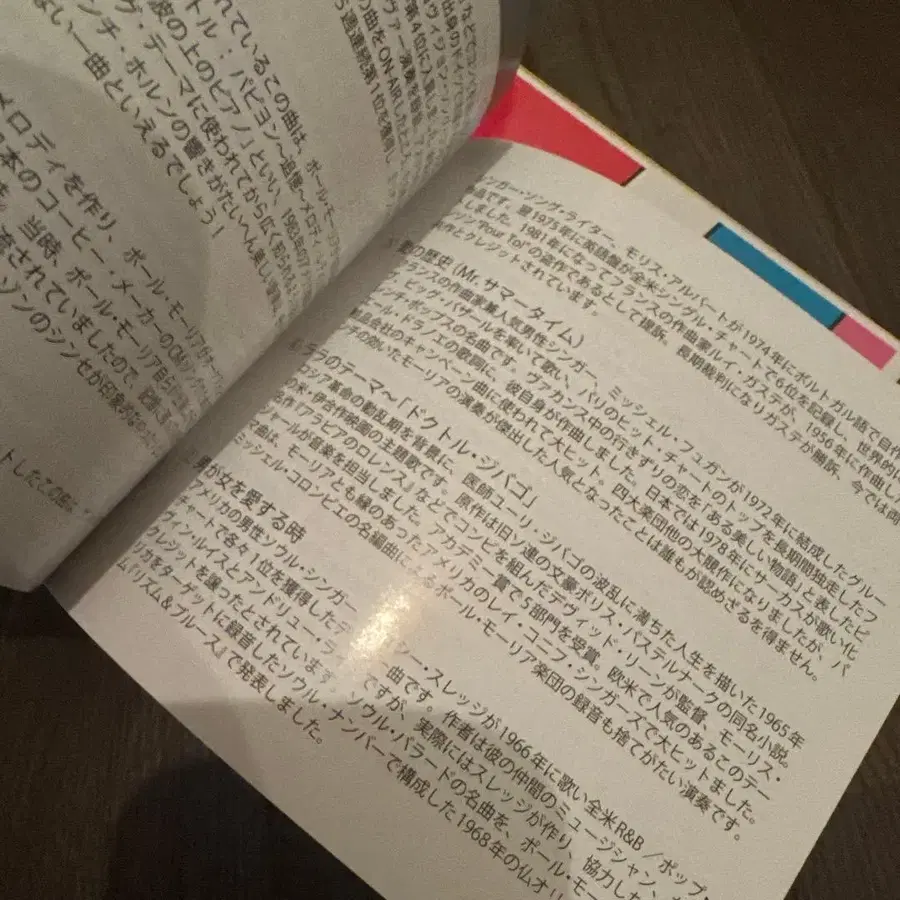 などでヨン
第4位に入賞し
の曲をON AIRした
5週連続第1位を獲得し
れているこの曲は、ポール・モー
トル・パピヨン〜追憶〜メロディ
波の上のピアノ」といい、1983年の
グ・テーマに使われてから広く知られ
ンチ・ホルンの響きがたいへん美しい
ない一曲といえるでしょう!
メロディを作り、ポール・モーリア
日本のコーヒー・メーカーのCM
当時、ポール・モーリア
流されていましたので、記憶
ソンのシンセが印象的な
トしたこの
ンガー・ソング・ライター、モリス・アルバートが1974年にポルトガル語で自作
品です。翌1975年に英語盤が全米シングル・チャートで6位を記録し、世界的に
しました。1981年になってフランスの作曲家ルイ・ガステが、1956年に作曲した
"Pour Toi"の盗作であるとして提訴。長期裁判になりガステが勝訴、今では両
作とクレジットされています。
愛の歴史(Mr.サマータイム)
フランスの作曲家兼人気男性シンガー、ミッシェル・フュガンが1972年に結成したグルー
ビッグ・バザールを率いて歌い、パリのヒット・チャートのトップを長期間独走したフ
レンチ・ポップスの名曲です。ヴァカンス中の行きずりの恋を「ある美しい物語」と表したピ
ール・ドラノエの歌詞に、彼自身が作曲しました。日本では1978年にサーカスが歌い化
粧品会社のキャンペーン曲に使われて大ヒット。四大楽団他の大競作になりましたが、パ
ンチの効いたモーリアの演奏が傑出した人気となったことは誰もが認めざるを得ません。
ララのテーマ〜「ドクトル・ジバゴ」
ロシア革命の動乱期を背景に、医師ユーリ・ジバゴの波乱に満ちた人生を描いた1965年
の米・伊合作映画の主題歌です。原作は旧ソ連の文豪ボリス・パステルナークの同名小説。
名作『アラビアのロレンス』などでコンビを組んだデヴィッド・リーンが監督、モーリス・
ジャールが音楽を担当しました。アカデミー賞で5部門を受賞。欧米で人気のあるこのテー
マ曲は、モーリアとも縁のあったアメリカのレイ・コニフ・シンガーズで大ヒットしました。
ミッシェル・コロンビエの名編曲によるポール・モーリア楽団の録音も捨てがたい演奏です。
男が女を愛する時
アメリカの男性ソウル・シンガー
シー・スレッジが1966年に歌い全米R&B/ポップ・
チャートで各々1位を獲得したデ
曲です。作者は彼の仲間のミュージシャン、
ヴィン・ルイスとアンドリュー・ラ
ですが、実際にはスレッジが作り、協力した
クレジットを譲ったとされています。ソウル・バラードの名曲を、ポール・モー
リカをターゲットに録音したソウル・ナンバーで構成した1968年の仏オリ
ム『リズム&ブルース』で発表しました。